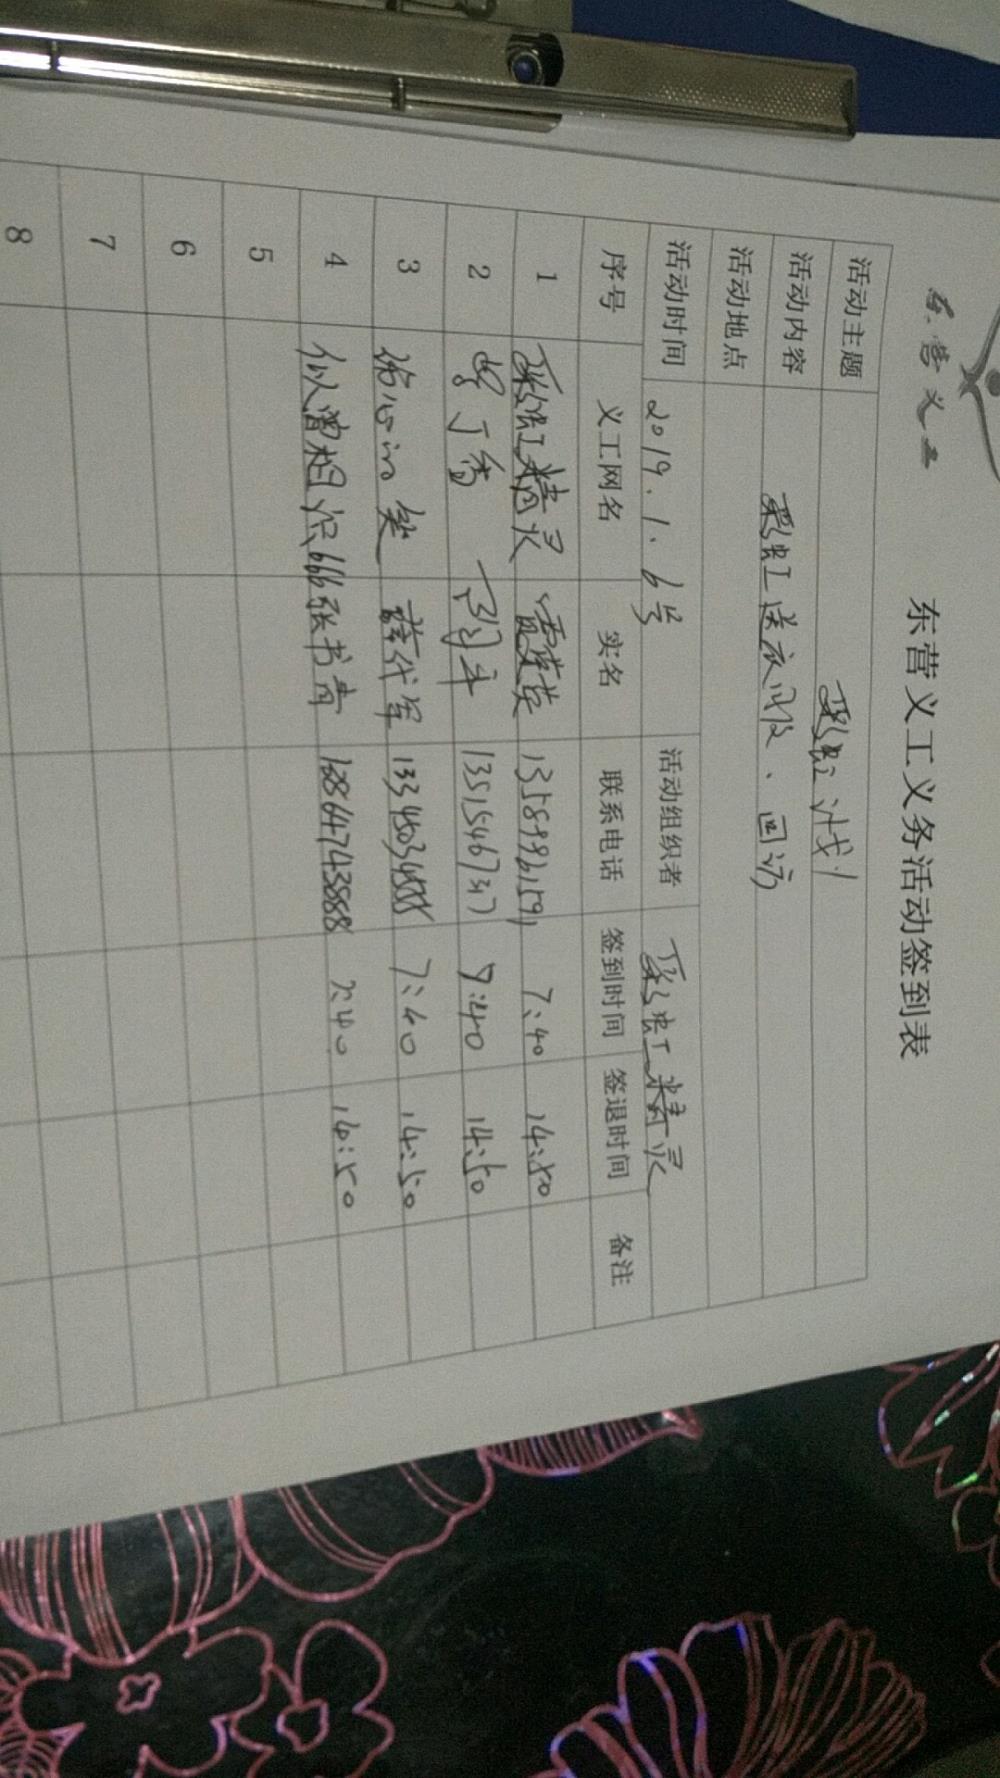 东营义工
东营义工义务活动签到表
活动主题 彩虹计划
活动内容 彩虹送衣服、回访
活动地点
活动时间 2019.1.6号 活动组织者 彩虹精灵
序号 义工网名 实名 联系电话 签到时间 签退时间 备注
1 彩虹精灵 13589986159 7:40 14:50
2 丁香 13515467317 7:40 14:50
3 伤心的笑 薛代军 7:40 14:50
4 似曾相识666 张书青 18864743888 7:40 14:50
5
6
7
8